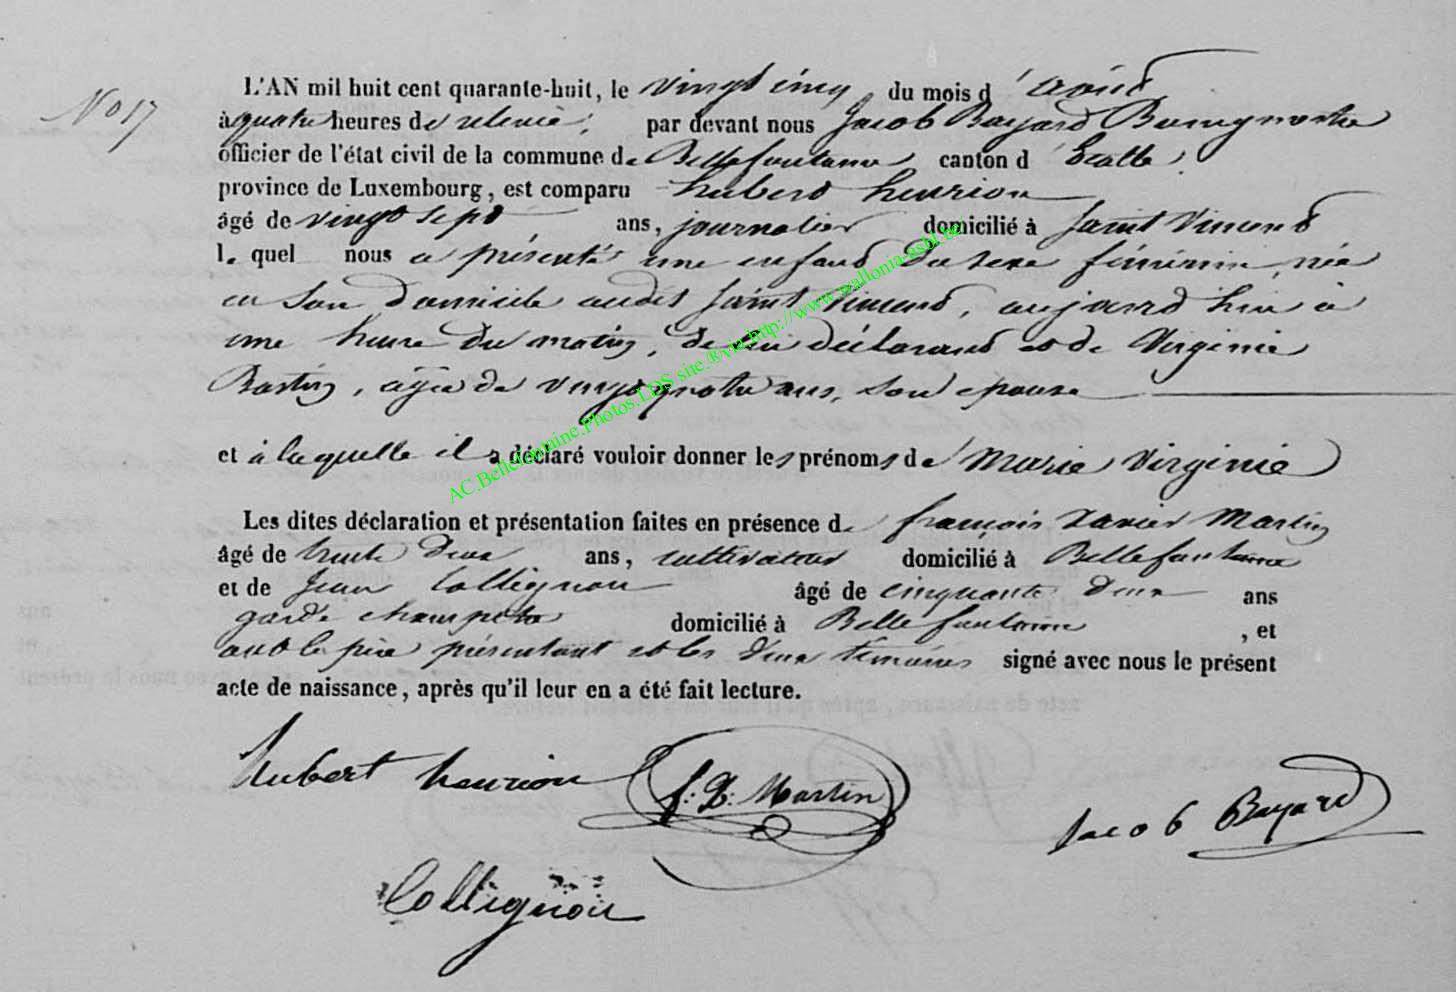 No 17
L'AN mil huit cent quarante-huit, le vingt cinq du mois d'août
à quatre heures de relevée, par devant nous Jacob Bayard Bourgmestre
officier de l'état civil de la commune de Bellefontaine canton d'Etalle,
province de Luxembourg, est comparu hubert henrion
âgé de vingt sept ans, journalier domicilié à Saint Vincent
lequel nous a présenté une enfant du sexe féminin, née
en son domicile audit Saint Vincent, aujourd'hui à
une heure du matin, de lui déclarant et de Virginie
Bastin, âgée de vingt quatre ans, son epouse
et à laquelle il a déclaré vouloir donner les prénoms de Marie Virginie
Les dites déclaration et présentation faites en présence de françois Xavier Martin
âgé de trente deux ans, cultivateur domicilié à Bellefontaine
et de Jean Collignon âgé de cinquante deux ans
garde champêtre domicilié à Bellefontaine, et
ont le père présentant et les deux témoins signé avec nous le présent
acte de naissance, après qu'il leur en a été fait lecture.
hubert henrion f: X: Martin Jacob Bayard
Collignon
AC.Bellefontaine.Photos.LDS site.®via http://www.wallonia-asbl.be/